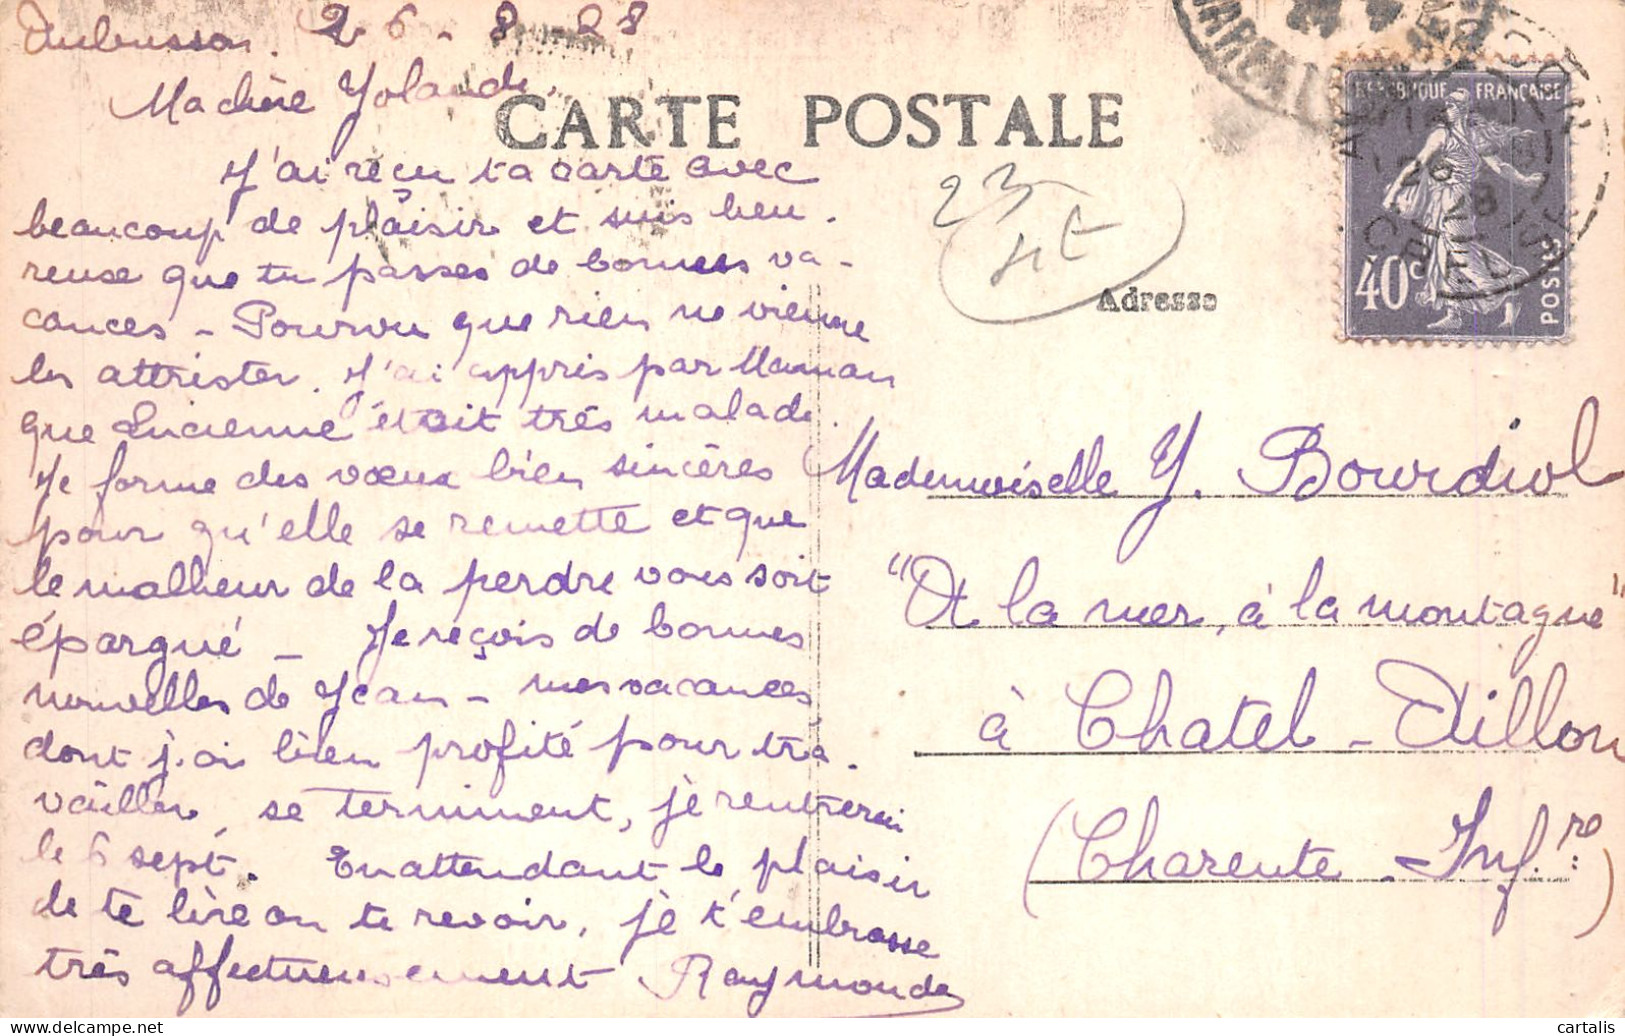 Aubusson. 26-8-28
Ma chère Yolande,
CARTE POSTALE
J'ai reçu ta carte avec
beaucoup de plaisir et suis heu-
reuse que tu passes de bonnes va-
cances - Pourvu que rien ne vienne
les attrister. J'ai appris par Maman
que Lucienne était très malade.
Je forme des vœux bien sincères
pour qu'elle se remette et que
le malheur de la perdre vous soit
épargné - Je reçois de bonnes
nouvelles de Jean - mes vacances,
dont j'ai bien profité pour tra-
vailler, se terminent, je rentrerai
le 6 sept. En attendant le plaisir
de te lire ou te revoir, je t'embrasse
très affectueusement Raymonde
23
4E
Adresse
REPUBLIQUE FRANÇAISE
40c
POSTES
26
28
Mademoiselle Y. Bourdiol
"A la mer, à la montagne"
à Chatel-Aillon
(Charente-Infre)
cartalis